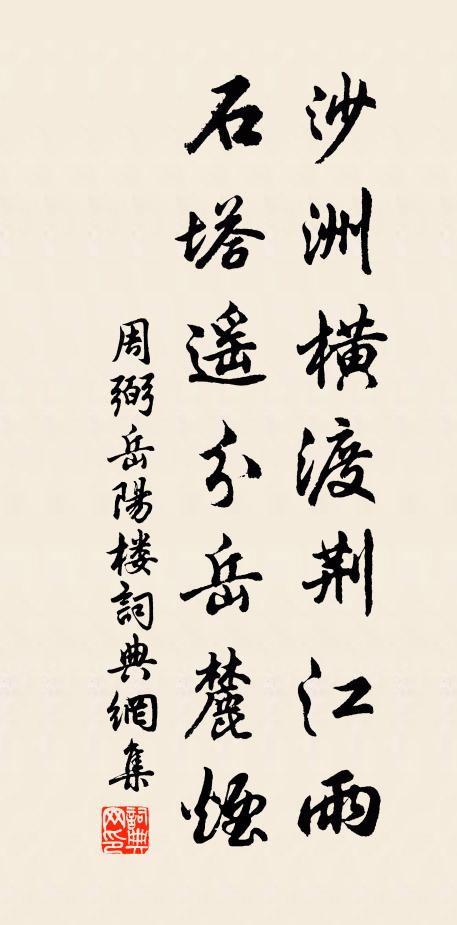 沙洲橫渡荆江雨
石塔遥分岳麓煙
周弼岳陽楼詞典網集
詞典網印